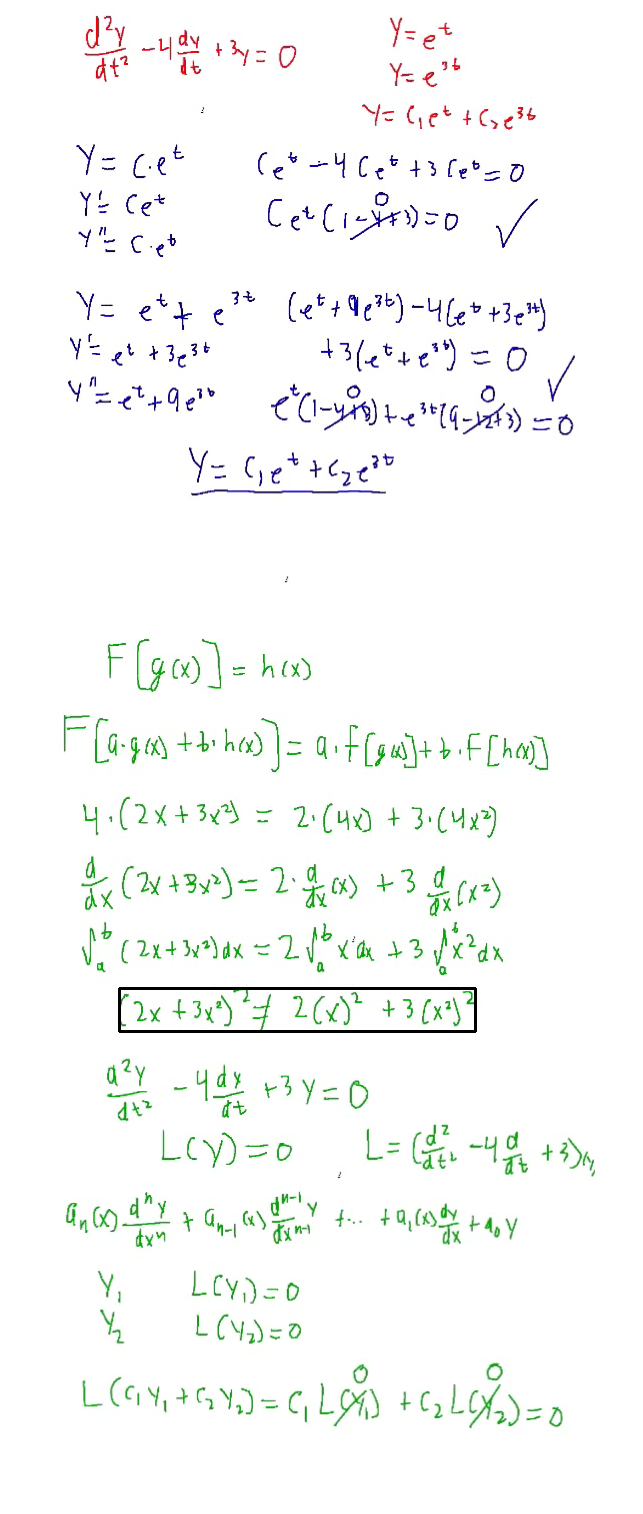 d²y/dt² - 4 dy/dt + 3y = 0
y = e^t
y = e^3t
y = C₁e^t + C₂e^3t
y = C·e^t
y' = Ce^t
y'' = C·e^t
Ce^t - 4Ce^t + 3Ce^t = 0
Ce^t(1-4+3) = 0 ✓
0
y = e^t + e^3t
y' = e^t + 3e^3t
y'' = e^t + 9e^3t
(e^t + 9e^3t) - 4(e^t + 3e^3t)
+ 3(e^t + e^3t) = 0 ✓
0 0
e^t(1-4+3) + e^3t(9-12+3) = 0
y = C₁e^t + C₂e^3t
F[g(x)] = h(x)
F[a·g(x) + b·h(x)] = a·F[g(x)] + b·F[h(x)]
4·(2x + 3x²) = 2·(4x) + 3·(4x²)
d/dx (2x + 3x²) = 2·d/dx (x) + 3 d/dx (x²)
∫_a^b (2x + 3x²)dx = 2∫_a^b x dx + 3∫_a^b x² dx
(2x + 3x²)² ≠ 2(x)² + 3(x²)²
d²y/dt² - 4 dy/dt + 3y = 0
L(y) = 0 L = (d²/dt² - 4 d/dt + 3)
aₙ(x) dⁿy/dxⁿ + aₙ₋₁(x) dⁿ⁻¹y/dxⁿ⁻¹ + ... + a₁(x) dy/dx + a₀y
y₁ L(y₁) = 0
y₂ L(y₂) = 0
0 0
L(C₁y₁ + C₂y₂) = C₁L(y₁) + C₂L(y₂) = 0